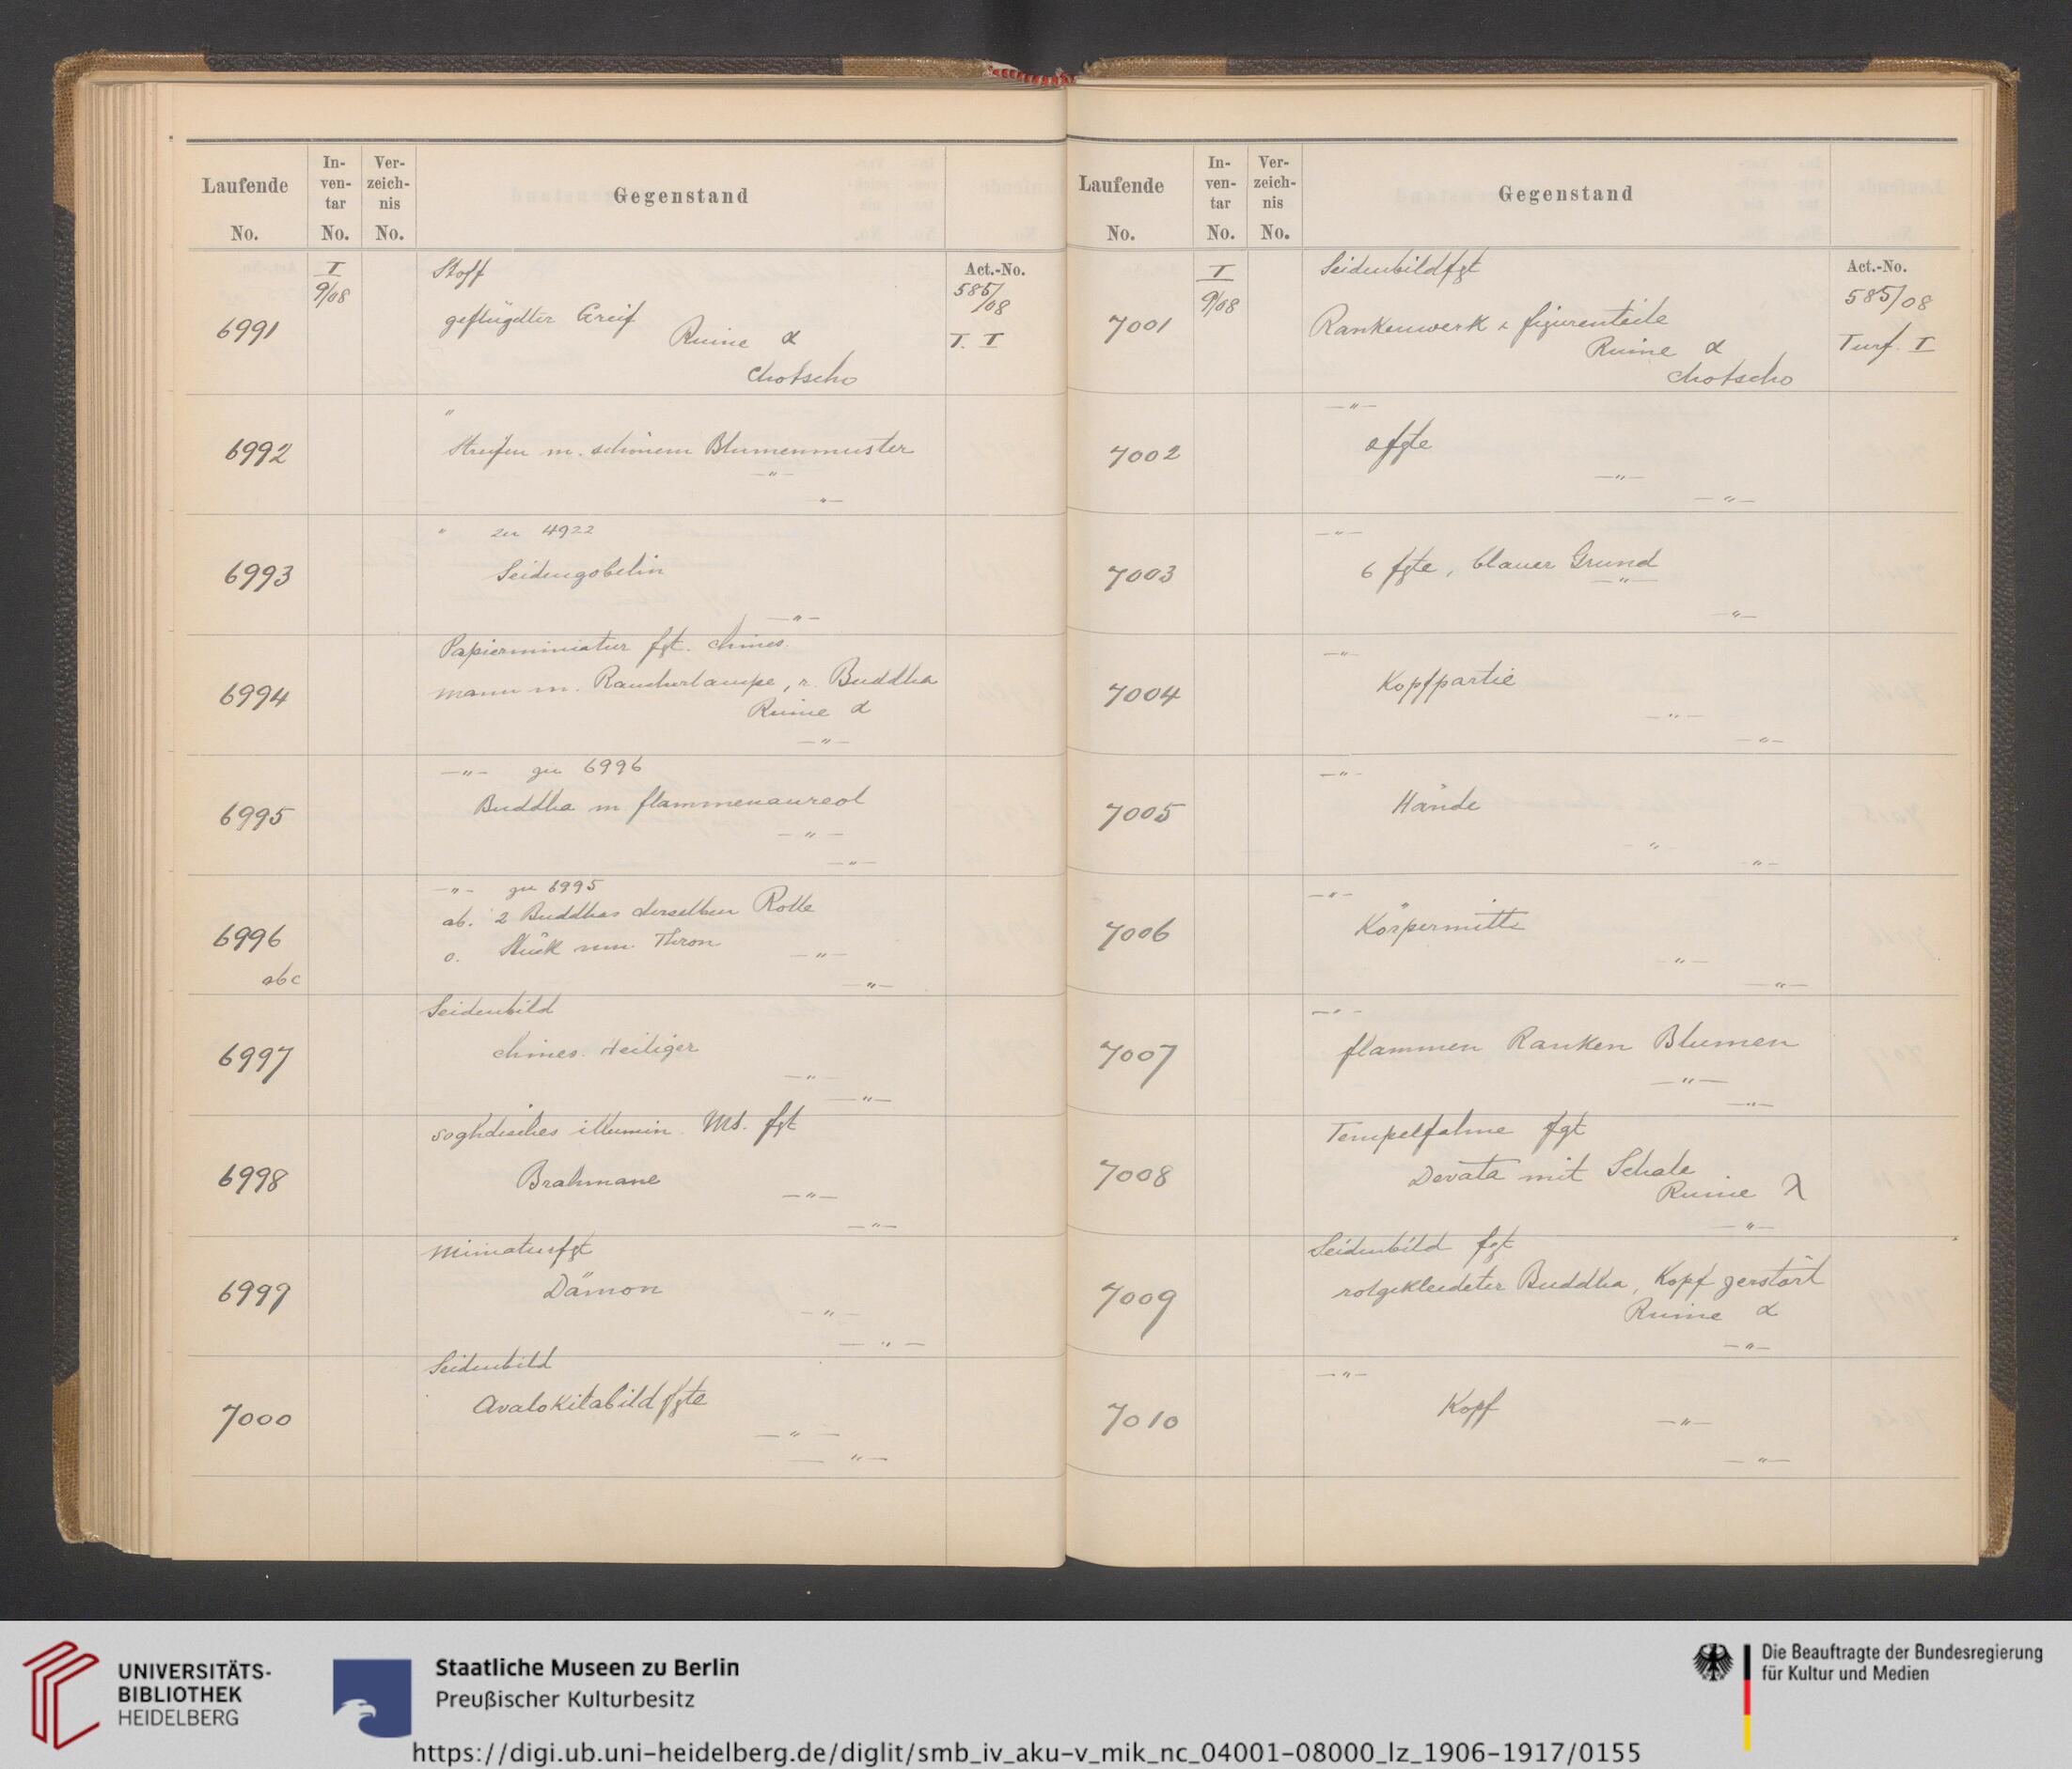 Laufende No. In-ven-tar No. Ver-zeich-nis No. Gegenstand
I 9/08 Stoff Act.-No.
585/08
6991 geflügelter Greif
Ruine α T. I
Chotscho
"
6992 Streifen m. schönem Blumenmuster
—"—
—"—
" zu 4922
6993 Seidengobelin
—"—
Papierminiatur fgt. chines.
6994 Mann m. Raucherlampe, r. Buddha
Ruine α
—"—
—"— zu 6996
6995 Buddha m flammenaureol
—"—
—"—
—"— zu 6995
ab. 2 Buddhas derselben Rolle
6996 c. Stück Thron —"—
abc —"—
Seidenbild
6997 chines. Heiliger
—"—
—"—
soghdisches illumin. Ms. fgt
6998 Brahmane
—"—
—"—
Miniaturfgt
6999 Dämon
—"—
—"—
Seidenbild
7000 Avalokitabild fgte
—"—
—"—
Laufende No. In-ven-tar No. Ver-zeich-nis No. Gegenstand
I 9/08 Seidenbildfgt Act.-No.
585/08
7001 Rankenwerk & figurenteile
Ruine α Turf. I
Chotscho
—"—
7002 2 fgte
—"—
—"—
—"—
7003 6 fgte, blauer Grund
—"—
—"—
—"—
7004 Kopfpartie
—"—
—"—
—"—
7005 Hände
—"—
—"—
—"—
7006 Körpermitte
—"—
—"—
—"—
7007 flammen Ranken Blumen
—"—
—"—
Tempelfahne fgt
7008 Devata mit Schale
Ruine λ
—"—
Seidenbild fgt
7009 rotgekleideter Buddha, Kopf zerstört
Ruine α
—"—
—"—
7010 Kopf —"—
—"—
UNIVERSITÄTS-
BIBLIOTHEK
HEIDELBERG
Staatliche Museen zu Berlin
Preußischer Kulturbesitz
Die Beauftragte der Bundesregierung
für Kultur und Medien
https://digi.ub.uni-heidelberg.de/diglit/smb_iv_aku-v_mik_nc_04001-08000_lz_1906-1917/0155